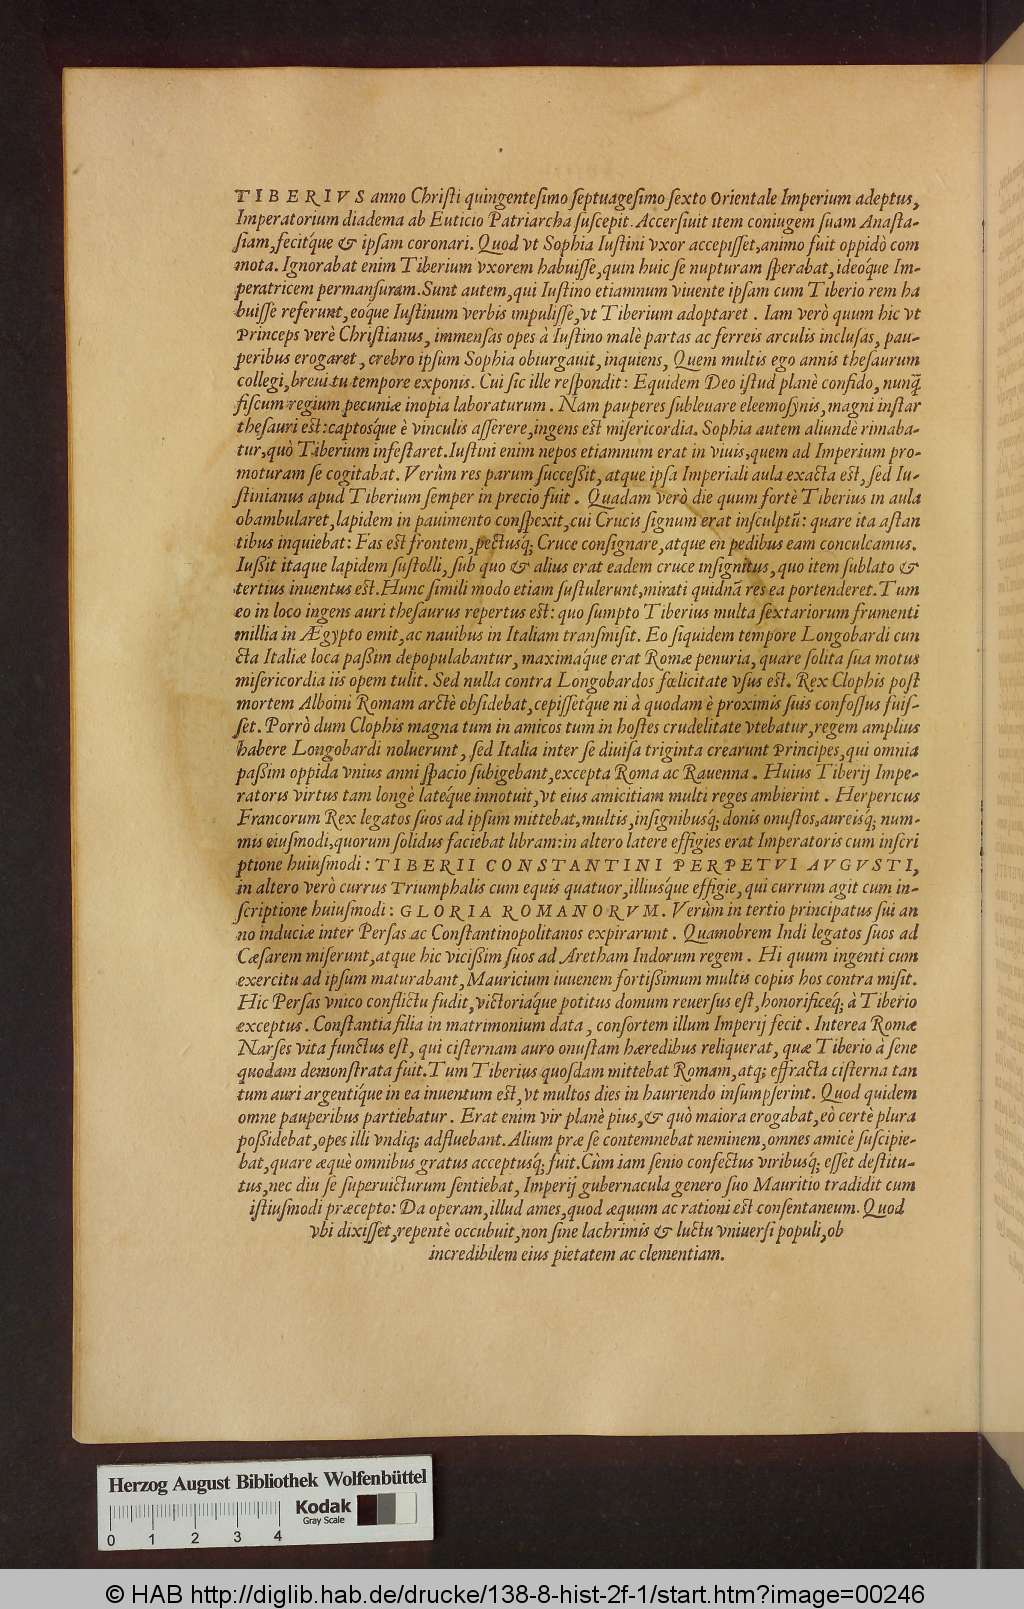 TIBERIVS anno Chriſti quingenteſimo ſeptuageſimo ſexto Orientale Imperium adeptus,
Imperatorium diadema ab Euticio Patriarcha ſuſcepit. Accerſiuit item coniugem ſuam Anaſta-
ſiam, fecitq́ue & ipſam coronari. Quod vt Sophia Iuſtini vxor accepiſſet, animo fuit oppidò com
mota. Ignorabat enim Tiberium vxorem habuiſſe, quin huic ſe nupturam ſperabat, ideoq́ue Im-
peratricem permanſuram. Sunt autem, qui Iuſtino etiamnum viuente ipſam cum Tiberio rem ha
buiſſe referunt, eoque Iuſtinum verbis impuliſſe, vt Tiberium adoptaret. Iam verò quum hic vt
Princeps verè Chriſtianus, immenſas opes à Iuſtino malè partas ac ferreis arculis incluſas, pau-
peribus erogaret, crebro ipſum Sophia obiurgauit, inquiens, Quem multis ego annis theſaurum
collegi, breui tu tempore exponis. Cui ſic ille reſpondit: Equidem Deo iſtud planè confido, nunq̃
fiſcum regium pecuniæ inopia laboraturum. Nam pauperes ſubleuare eleemoſynis, magni inſtar
theſauri eſt: captosq́ue è vinculis aſſerere, ingens eſt miſericordia. Sophia autem aliunde rimaba-
tur, quò Tiberium infeſtaret. Iuſtini enim nepos etiamnum erat in viuis, quem ad Imperium pro-
moturam ſe cogitabat. Verùm res parum ſucceßit, atque ipſa Imperiali aula exacta eſt, ſed Iu-
ſtinianus apud Tiberium ſemper in precio fuit. Quadam verò die quum fortè Tiberius in aula
obambularet, lapidem in pauimento conſpexit, cui Crucis ſignum erat inſculptũ: quare ita aſtan
tibus inquiebat: Fas eſt frontem, pectusq́; Cruce conſignare, atque en pedibus eam conculcamus.
Iußit itaque lapidem ſuſtolli, ſub quo & alius erat eadem cruce inſignitus, quo item ſublato &
tertius inuentus eſt. Hunc ſimili modo etiam ſuſtulerunt, mirati quidnã res ea portenderet. Tum
eo in loco ingens auri theſaurus repertus eſt: quo ſumpto Tiberius multa ſextariorum frumenti
millia in Ægypto emit, ac nauibus in Italiam tranſmiſit. Eo ſiquidem tempore Longobardi cun
cta Italiæ loca paßim depopulabantur, maximaq́ue erat Romæ penuria, quare ſolita ſua motus
miſericordia iis opem tulit. Sed nulla contra Longobardos fœlicitate vſus eſt. Rex Clophis poſt
mortem Alboini Romam arctè obſidebat, cepiſſetq́ue ni à quodam è proximis ſuis confoſſus fuiſ-
ſet. Porrò dum Clophis magna tum in amicos tum in hoſtes crudelitate vtebatur, regem amplius
habere Longobardi noluerunt, ſed Italia inter ſe diuiſa triginta crearunt Principes, qui omnia
paßim oppida vnius anni ſpacio ſubigebant, excepta Roma ac Rauenna. Huius Tiberij Impe-
ratoris virtus tam longè lateq́ue innotuit, vt eius amicitiam multi reges ambierint. Herpericus
Francorum Rex legatos ſuos ad ipſum mittebat, multis, inſignibusq́; donis onuſtos, aureisq́; num-
mis eiuſmodi, quorum ſolidus faciebat libram: in altero latere effigies erat Imperatoris cum inſcri
ptione huiuſmodi: TIBERII CONSTANTINI PERPETVI AVGVSTI,
in altero verò currus Triumphalis cum equis quatuor, illiusq́ue effigie, qui currum agit cum in-
ſcriptione huiuſmodi: GLORIA ROMANORVM. Verùm in tertio principatus ſui an
no induciæ inter Perſas ac Conſtantinopolitanos expirarunt. Quamobrem Indi legatos ſuos ad
Cæſarem miſerunt, atque hic vicißim ſuos ad Aretham Indorum regem. Hi quum ingenti cum
exercitu ad ipſum maturabant, Mauricium iuuenem fortißimum multis copiis hos contra miſit.
Hic Perſas vnico conflictu fudit, victoriaq́ue potitus domum reuerſus eſt, honorificeq́; à Tiberio
exceptus. Conſtantia filia in matrimonium data, conſortem illum Imperij fecit. Interea Romæ
Narſes vita functus eſt, qui ciſternam auro onuſtam hæredibus reliquerat, quæ Tiberio à ſene
quodam demonſtrata fuit. Tum Tiberius quoſdam mittebat Romam, atq; effracta ciſterna tan
tum auri argentiq́ue in ea inuentum eſt, vt multos dies in hauriendo inſumpſerint. Quod quidem
omne pauperibus partiebatur. Erat enim vir planè pius, & quò maiora erogabat, eò certè plura
poßidebat, opes illi vndiq; adfluebant. Alium præ ſe contemnebat neminem, omnes amicè ſuſcipie-
bat, quare æquè omnibus gratus acceptusq́; fuit. Cùm iam ſenio confectus viribusq́; eſſet deſtitu-
tus, nec diu ſe ſuperuicturum ſentiebat, Imperij gubernacula genero ſuo Mauritio tradidit cum
iſtiuſmodi præcepto: Da operam, illud ames, quod æquum ac rationi eſt conſentaneum. Quod
vbi dixiſſet, repentè occubuit, non ſine lachrimis & luctu vniuerſi populi, ob
incredibilem eius pietatem ac clementiam.
Herzog August Bibliothek Wolfenbüttel
Kodak
Gray Scale
0 1 2 3 4
© HAB http://diglib.hab.de/drucke/138-8-hist-2f-1/start.htm?image=00246